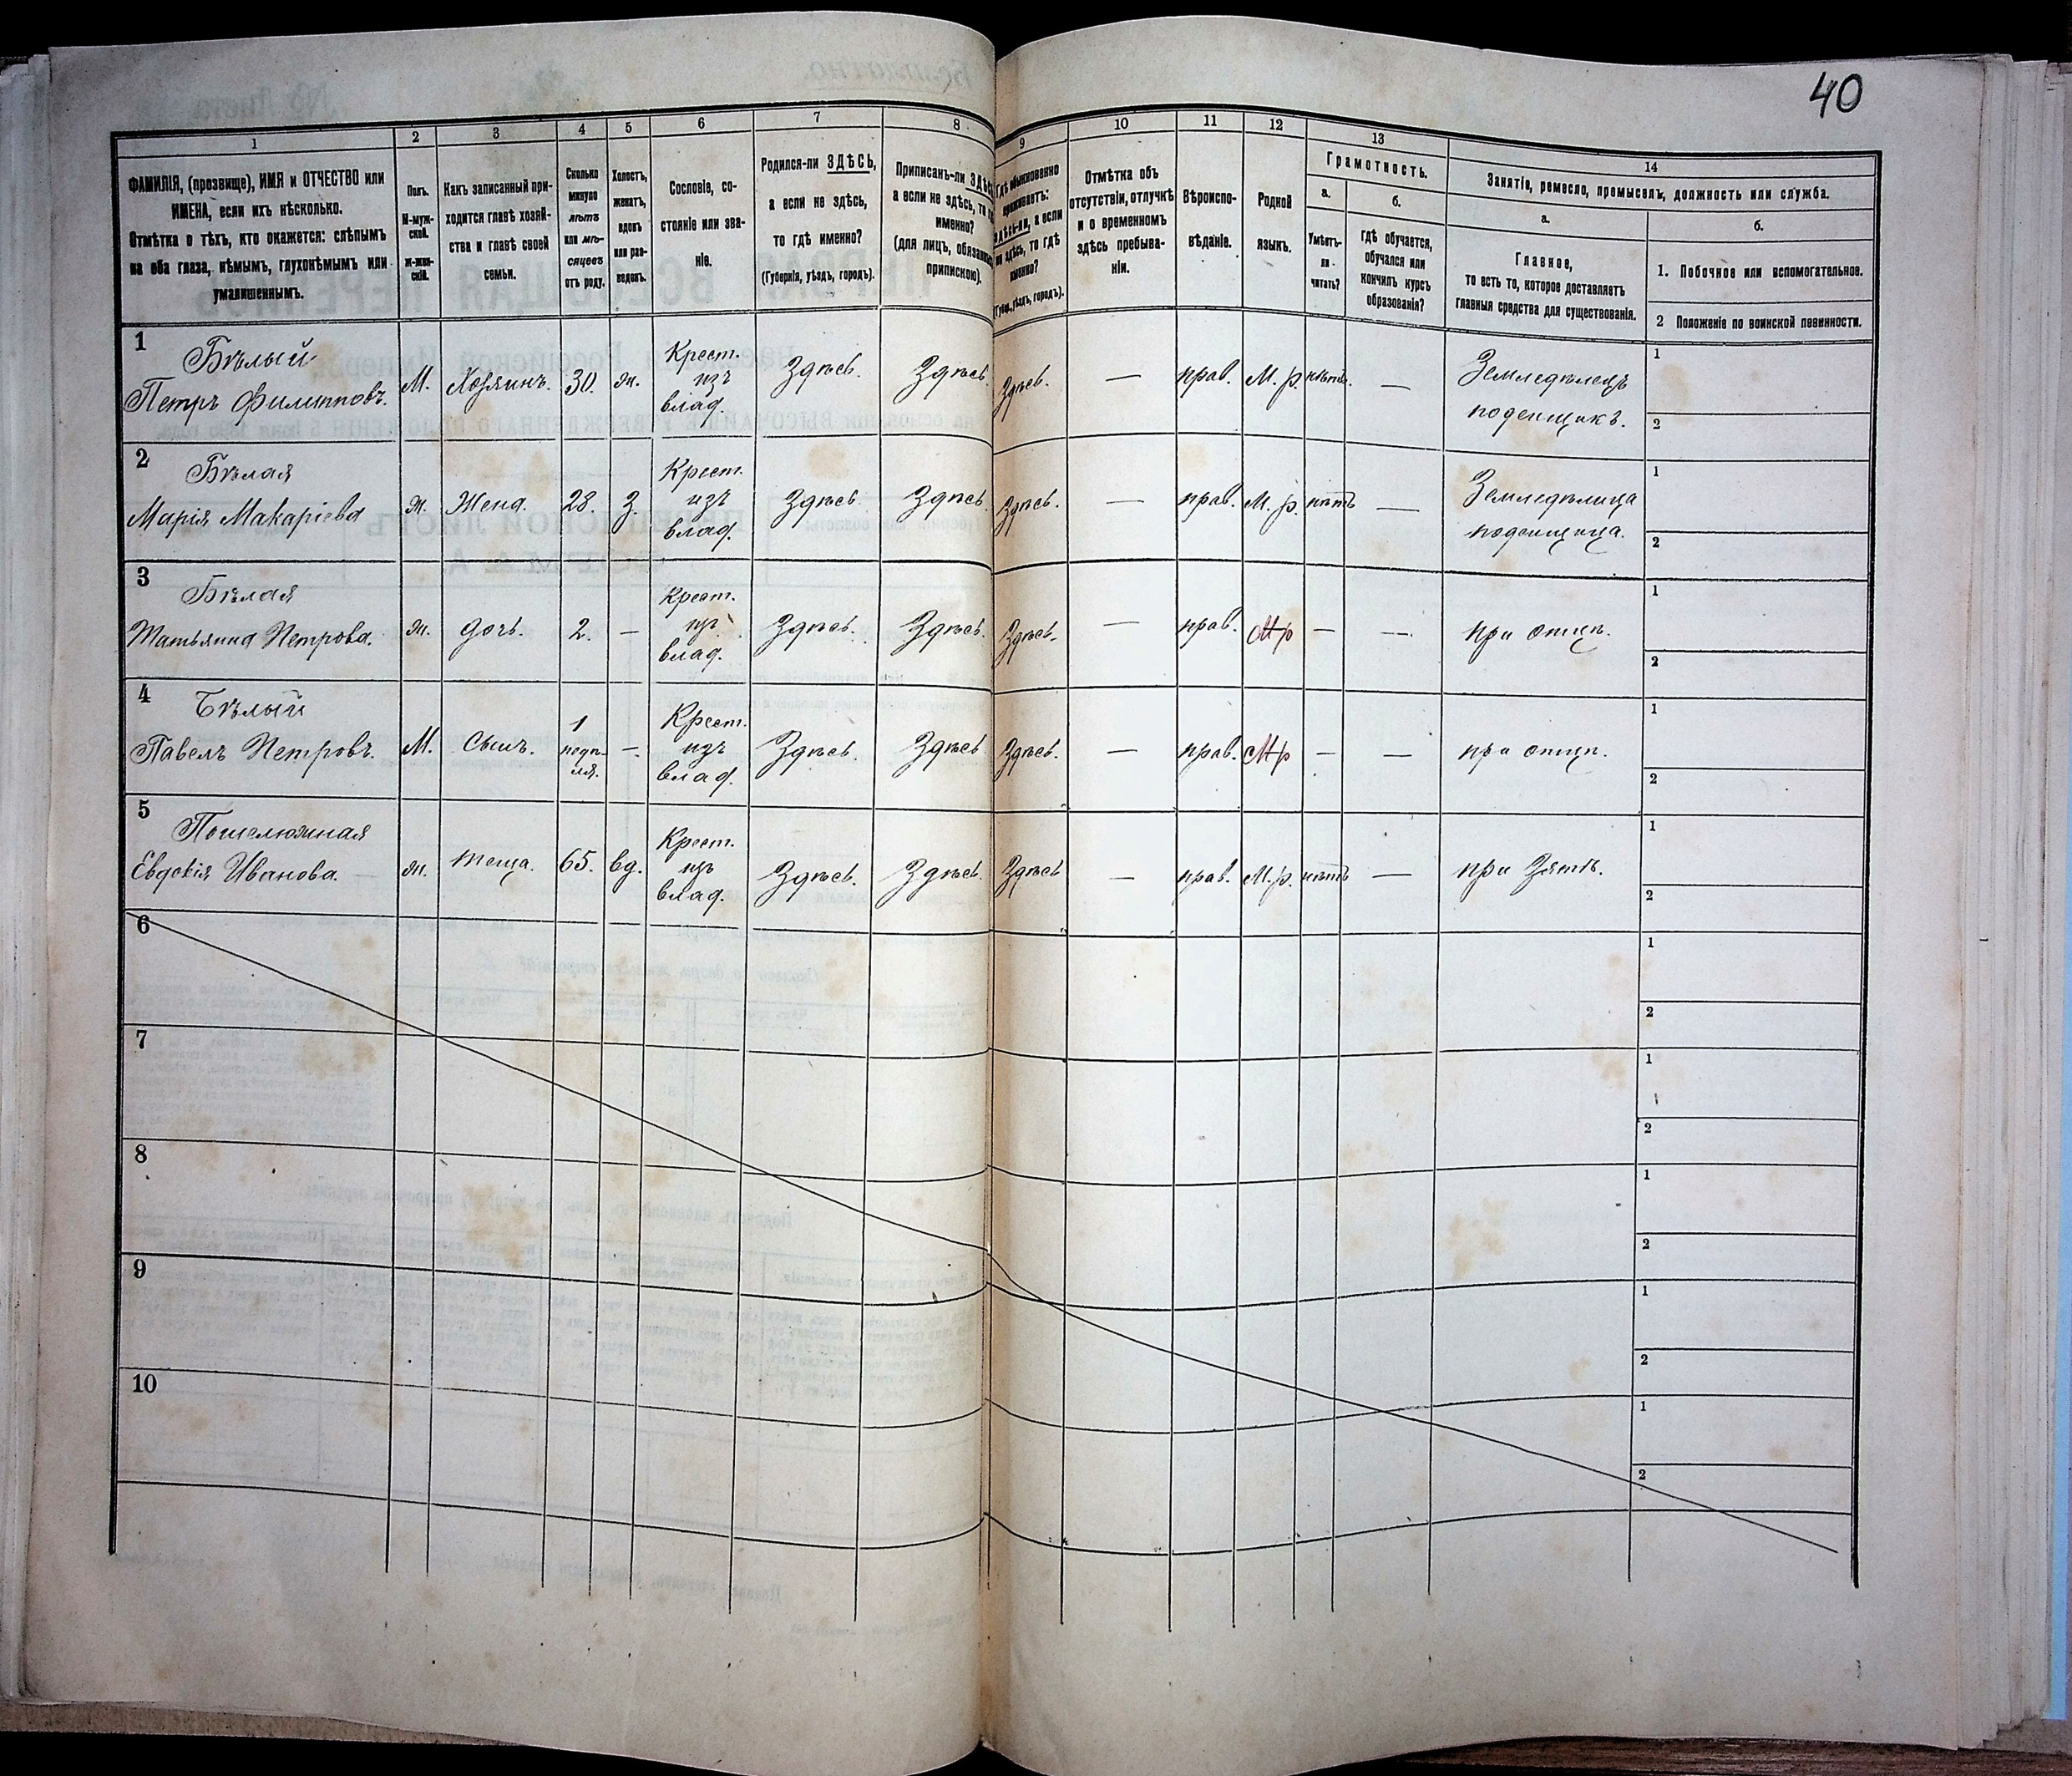 40
1
2
3
4
5
6
7
8
9
10
11
12
13
14
ФАМИЛІЯ, (прозвище), ИМЯ и ОТЧЕСТВО или
ИМЕНА, если ихъ нѣсколько.
Отмѣтка о тѣхъ, кто окажется: слѣпымъ
на оба глаза, нѣмымъ, глухонѣмымъ или
умалишеннымъ.
Полъ.
М-муж-
ской.
Ж-жен-
скій.
Какъ записанный при-
ходится главѣ хозяй-
ства и главѣ своей
семьи.
Сколько
минуло
лѣтъ
или мѣ-
сяцевъ
отъ роду.
Холостъ,
женатъ,
вдовъ
или раз-
веденъ.
Сословіе, со-
стояніе или зва-
ніе.
Родился-ли ЗДѢСЬ,
а если не здѣсь,
то гдѣ именно?
(Губернія, уѣздъ, городъ).
Приписанъ-ли ЗДѢСЬ
а если не здѣсь, то гдѣ
именно?
(для лицъ, обязанныхъ
припискою).
Гдѣ обыкновенно
проживаетъ:
здѣсь-ли, а если
не здѣсь, то гдѣ
именно?
(Губ., уѣздъ, городъ).
Отмѣтка объ
отсутствіи, отлучкѣ
и о временномъ
здѣсь пребыва-
ніи.
Вѣроиспо-
вѣданіе.
Родной
языкъ.
Грамотность.
а.
Умѣетъ-
ли
читать?
б.
гдѣ обучается,
обучался или
кончилъ курсъ
образованія?
Занятіе, ремесло, промыселъ, должность или служба.
а.
Главное,
то есть то, которое доставляетъ
главныя средства для существованія.
б.
1. Побочное или вспомогательное.
2 Положеніе по воинской повинности.
1
Бѣлый
Петръ Филипповъ.
М.
Хозяинъ.
30.
ж.
Крест.
изъ
влад.
Здѣсь.
Здѣсь.
Здѣсь.
—
прав.
М. р.
нѣтъ.
—
Земледѣлецъ
поденщикъ.
1
2
2
Бѣлая
Марія Макаріева
ж.
Жена.
28.
З.
Крест.
изъ
влад.
Здѣсь
Здѣсь.
Здѣсь.
—
прав.
М. р.
нѣтъ
—
Земледѣлица
поденщица.
1
2
3
Бѣлая
Татьяна Петрова.
ж.
дочь.
2.
—
Крест.
изъ
влад.
Здѣсь.
Здѣсь.
Здѣсь.
—
прав.
М р
—
—
при отцѣ.
1
2
4
Бѣлый
Павелъ Петровъ.
М.
Сынъ.
1
недѣ-
ля.
—
Крест.
изъ
влад.
Здѣсь.
Здѣсь
Здѣсь.
—
прав.
М р
—
—
при отцѣ.
1
2
5
Евдокія Иванова.
ж.
теща.
65.
вд.
Крест.
изъ
влад.
Здѣсь.
Здѣсь.
Здѣсь
—
прав.
М. р.
нѣтъ
—
при Зятѣ.
1
2
6
1
2
7
1
2
8
1
2
9
1
2
10
1
2